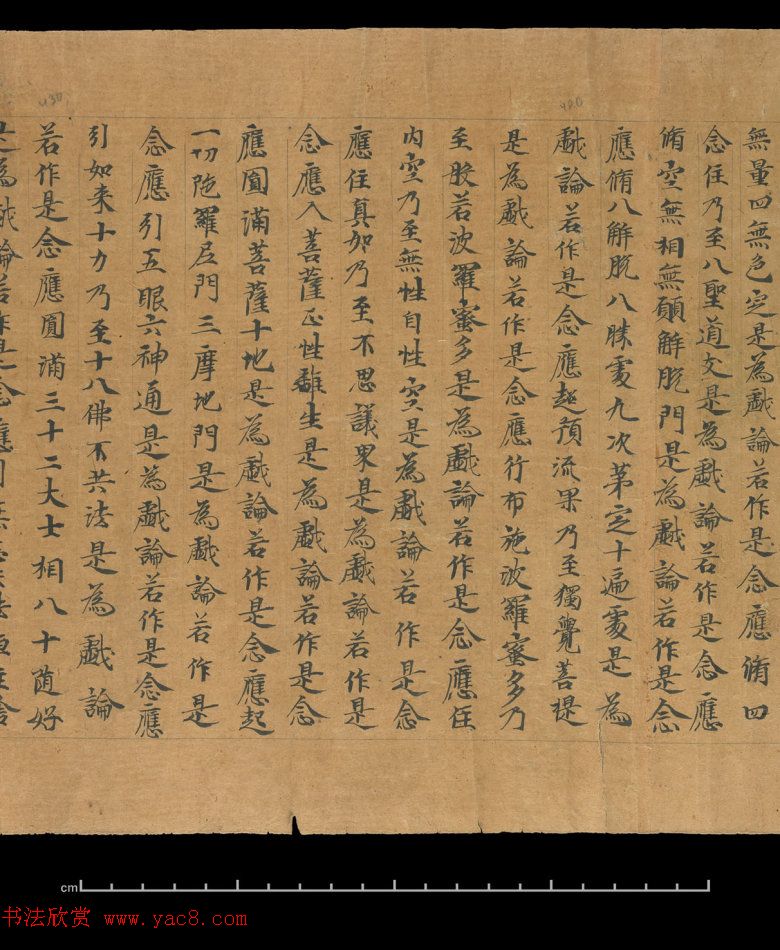 無量四無色定是為戲論若作是念應脩四
念住乃至八聖道支是為戲論若作是念應
脩空無相無願解脫門是為戲論若作是念
應脩八解脫八勝處九次第定十遍處是為
戲論若作是念應趣預流果乃至獨覺菩提
是為戲論若作是念應行布施波羅蜜多乃
至般若波羅蜜多是為戲論若作是念應住
內空乃至無性自性空是為戲論若作是念
應住真如乃至不思議界是為戲論若作是
念應入菩薩正性離生是為戲論若作是念
應圓滿菩薩十地是為戲論若作是念應起
一切陁羅尼門三摩地門是為戲論若作是
念應引五眼六神通是為戲論若作是念應
引如來十力乃至十八佛不共法是為戲論
若作是念應圓滿三十二大士相八十随好
是為戲論若作是念應引
430
420
cm
书法欣赏 www.yac8.com